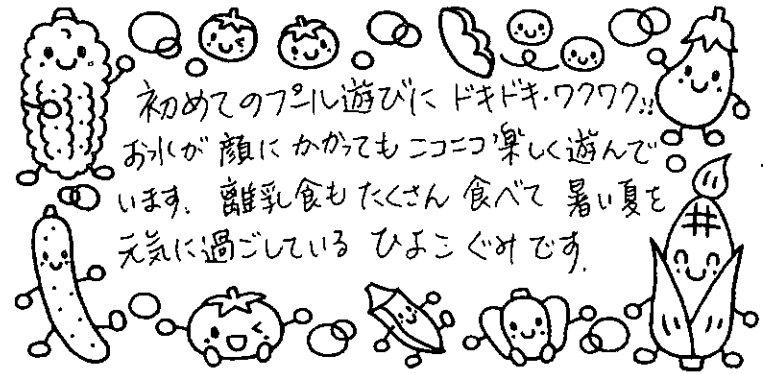 初めてのプール遊びに ドキドキ・ワクワク!!
お水が顔に かかっても ニコニコ楽しく遊んで
います。離乳食も たくさん 食べて 暑い夏を
元気に過ごしている ひよこぐみです。